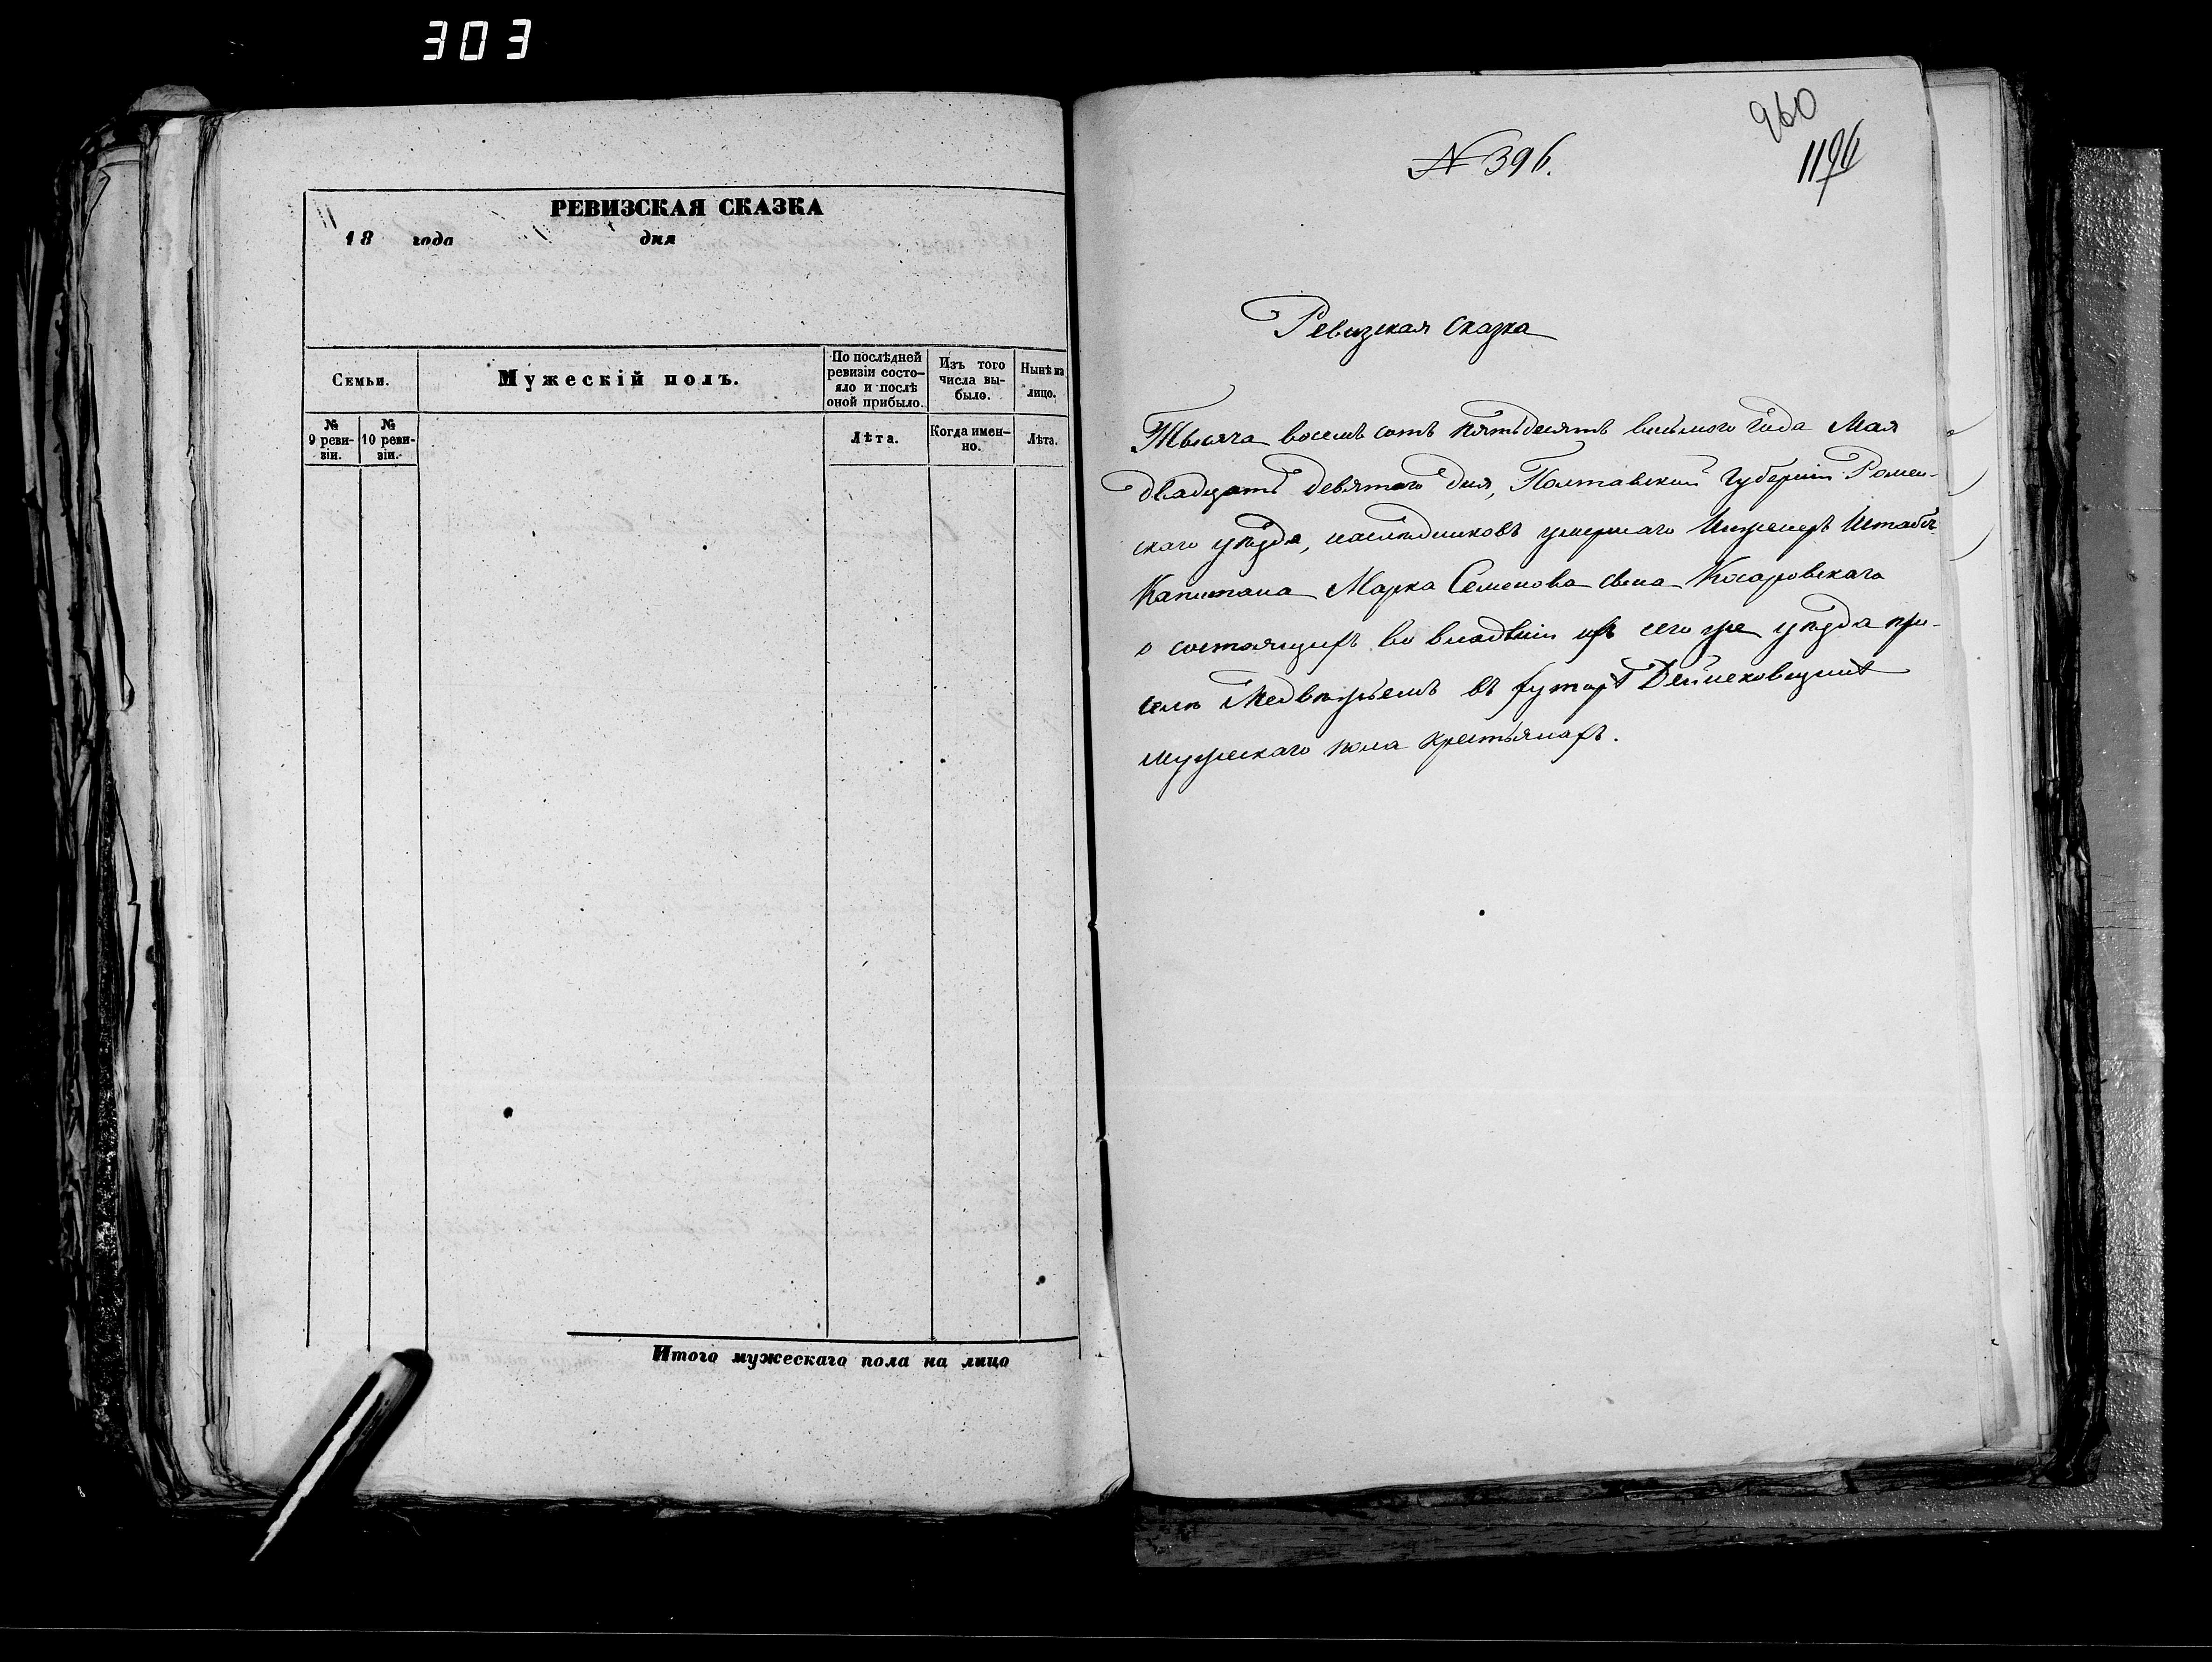 303
РЕВИЗСКАЯ СКАЗКА
18 года дня
Семьи.
Мужескій полъ.
По послѣдней
ревизіи состо-
яло и послѣ
оной прибыло.
Изъ того
числа вы-
было.
Нынѣ на
лицо.
№
9 реви-
зіи.
№
10 реви-
зіи.
Лѣта.
Когда имен-
но.
Лѣта.
Итого мужескаго пола на лицо
960
1196
№ 396.
Ревизская сказка
Тысяча восемь сотъ пятьдесятъ восьмого года Мая
двадцать девятого дня, Полтавской Губерніи Ромен-
скаго уѣзда, наслѣдниковъ умершаго Инженеръ Штабсъ
Капитана Марка Семенова сына Косаровскаго
о состоящихъ во владѣніи ихъ сего же уѣзда при
селѣ Медвѣжьемъ въ хуторѣ Дейнековщинѣ
мужескаго пола крестьянахъ.